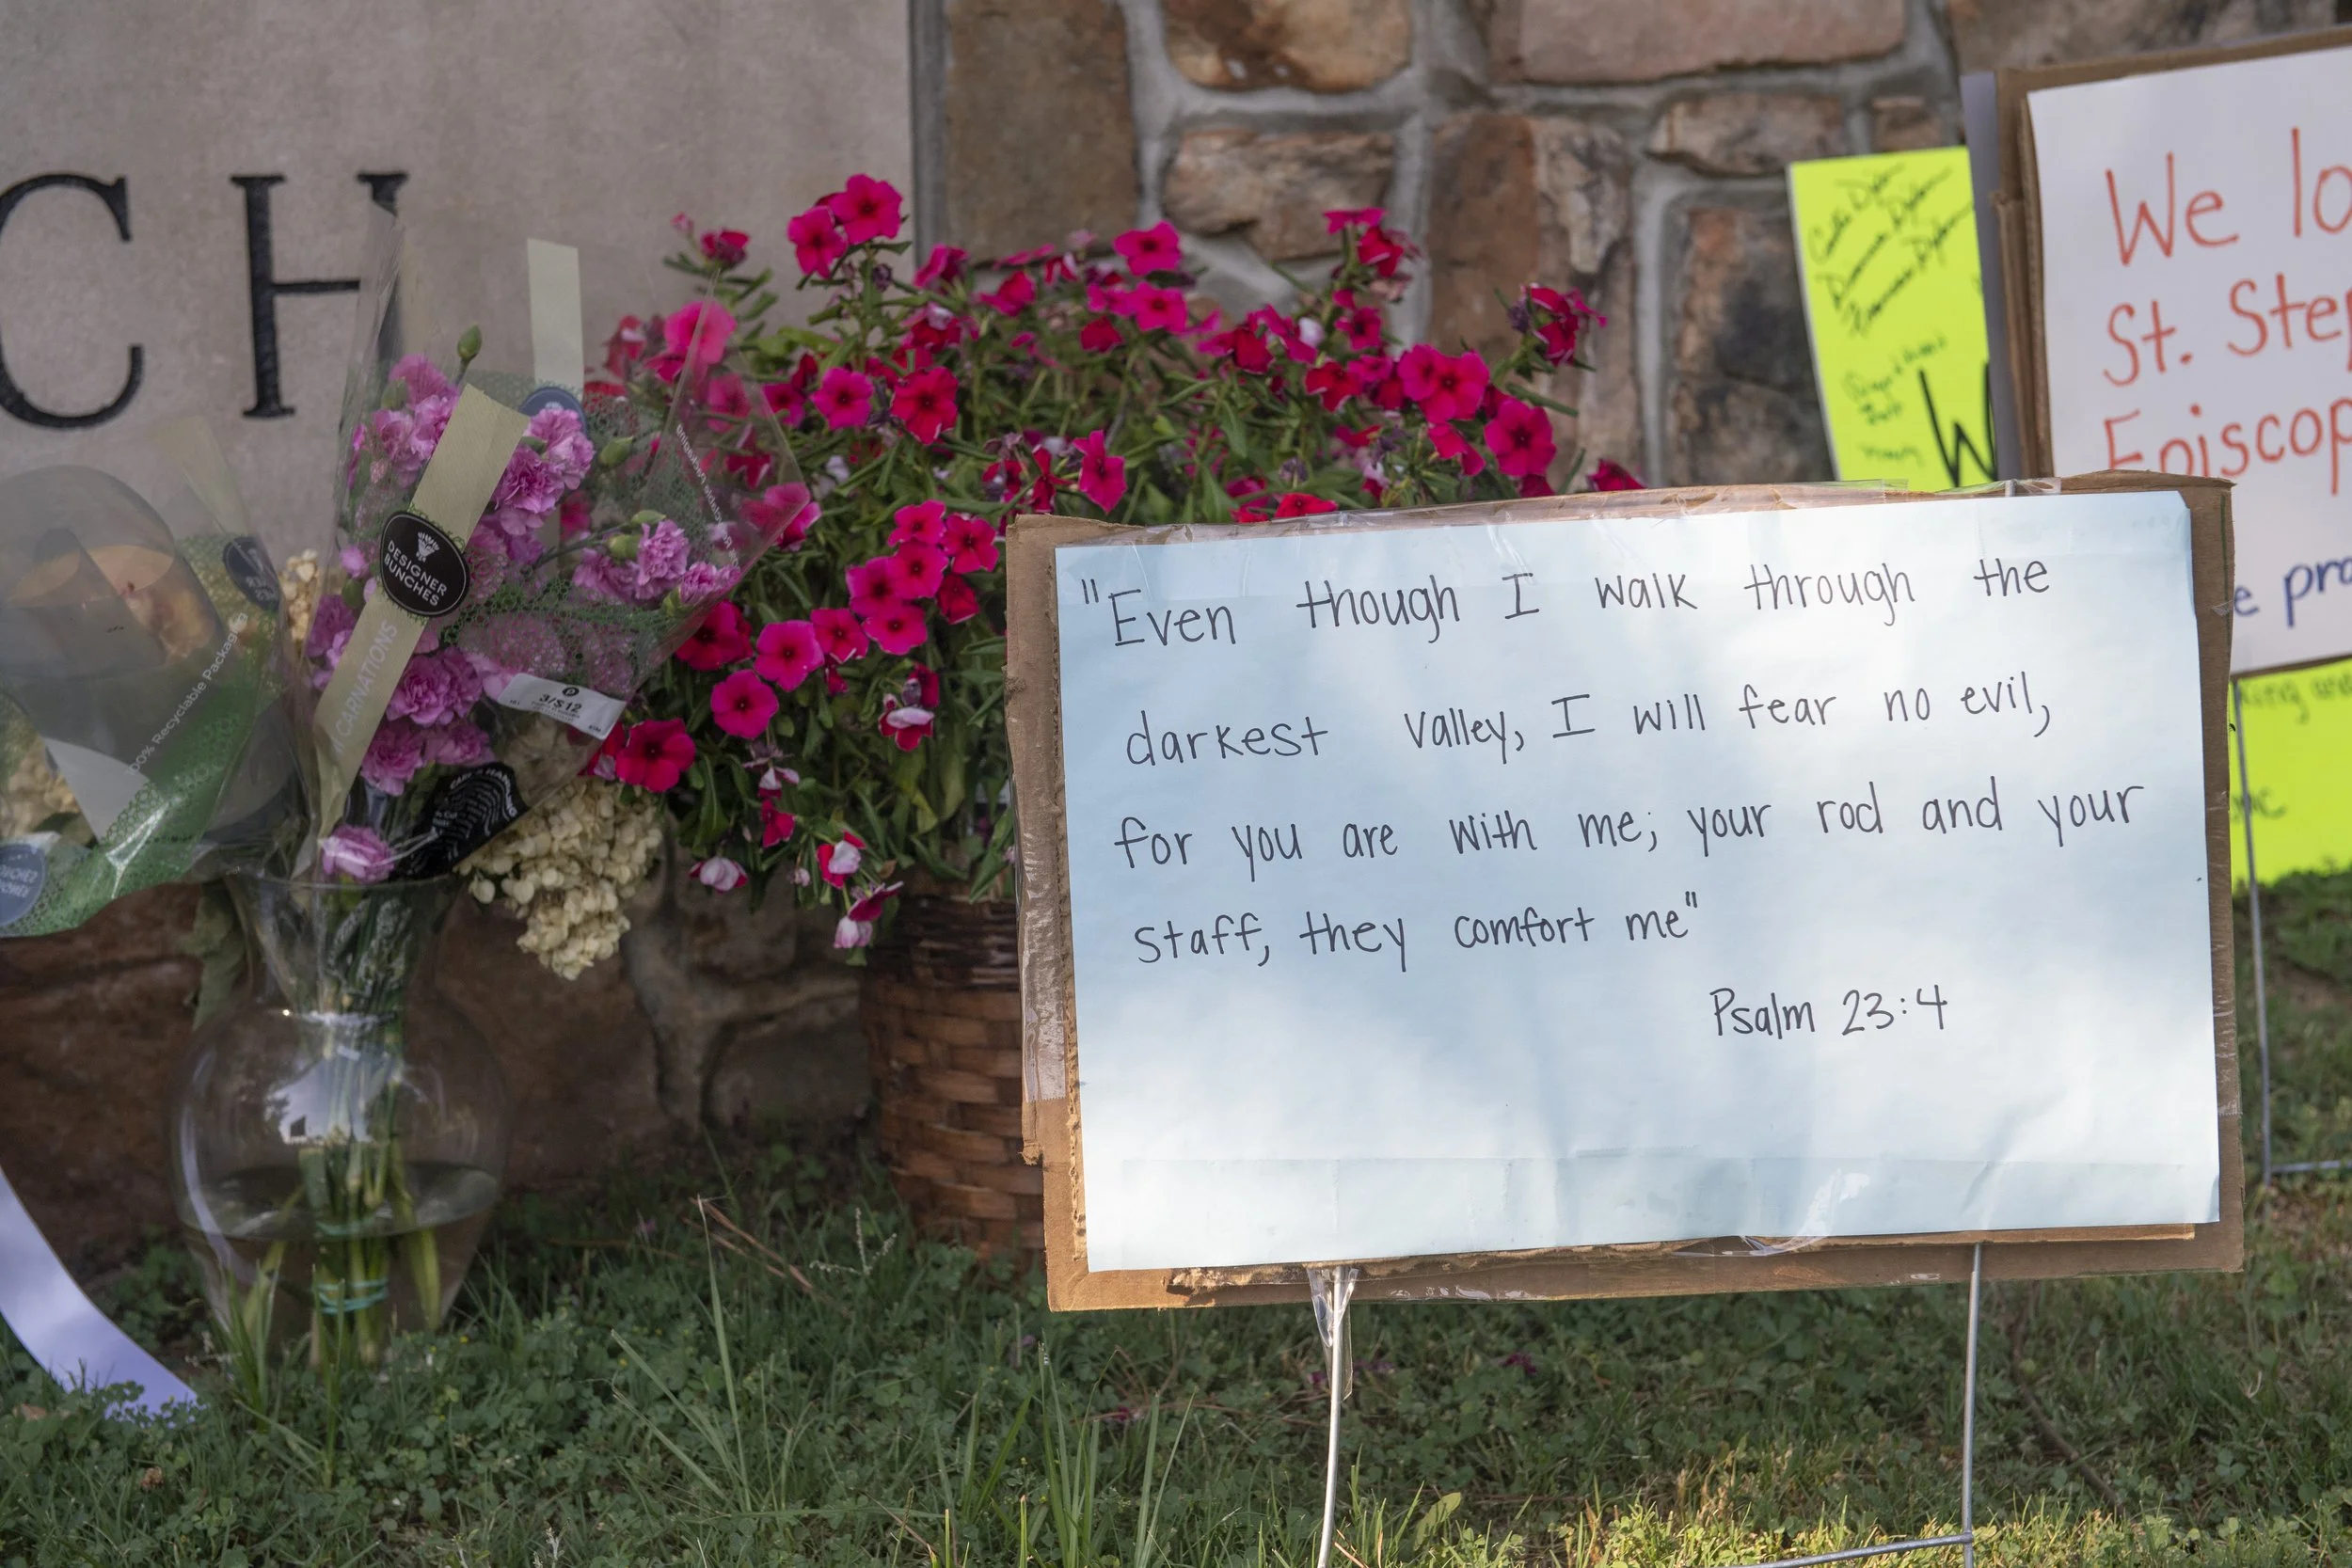 CH
"Even though I walk through the
darkest valley, I will fear no evil,
for you are with me; your rod and your
staff, they comfort me"
Psalm 23:4
We lo
St. Ste
Episcop
e pra
W
DESIGNER
BUNCHES
CARNATIONS
3/$12
100% Recyclable Packag